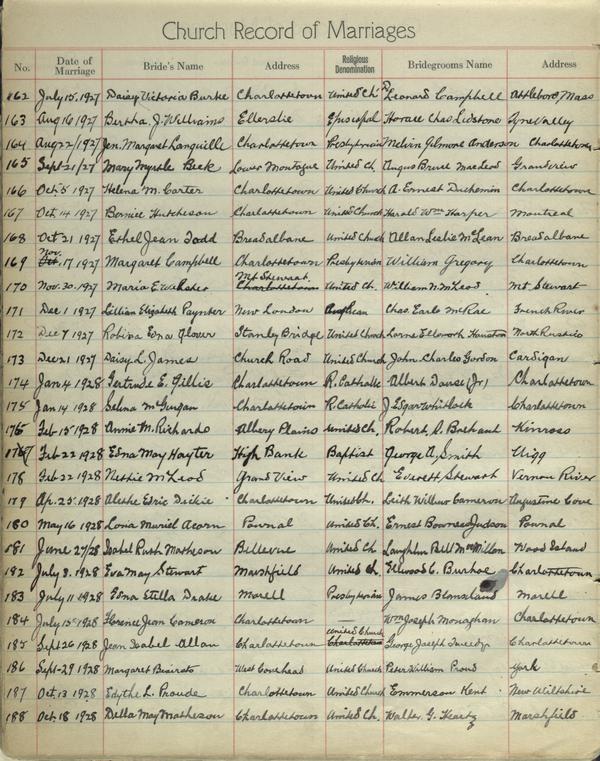 Church Record of Marriages
No. Date of Marriage Bride's Name Address Religious Denomination Bridegrooms Name Address
162 July 15, 1927 Daisy Victoria Burke Charlottetown United Ch. Leonard Campbell Attleboro, Mass
163 Aug 16 1927 Bertha J. Williams Ellerslie Episcopal Horace Chas Lidstone
164 Aug 22/1927 Jen. Margaret Languille Charlottetown Presbyterian Melvin Gilmore Anderson Charlottetown
165 Sept 21/27 Mary Myrtle Beck Lower Montague United Ch. Angus Bruce MacLeod Grandview
166 Oct 5 1927 Helena M. Carter Charlottetown United Church A. Ernest Duchemin Charlottetown
167 Oct 14 1927 Bernice Hutcheson Charlottetown United Church Harold Wm Harper Montreal
168 Oct 21 1927 Ethel Jean Dodd Breadalbane United Church Allan Leslie McLean Breadalbane
169 Nov. 17 1927 Margaret Campbell Charlottetown Presbyterian William Gregory Charlottetown
170 Nov. 30, 1927 Maria E. Webster Mt Stewart Charlottetown United Ch. William N. McLeod Mt. Stewart
171 Dec 1 1927 Lillian Elizabeth Paynter New London Anglican Chas. Earle McRae French River
172 Dec 7 1927 Robina Edna Glover Stanley Bridge United Church Lorne Ellsworth Houston North Rustico
173 Dec 21 1927 Daisy L. James Church Road United Church John Charles Gordon Cardigan
174 Jan 4 1928 Gertrude E. Gillis Charlottetown R. Catholic Albert Dause (Jr) Charlottetown
175 Jan 14 1928 Selina McGuigan Charlottetown R. Catholic J Edgar Whitlock Charlottetown
176 Feb 15 1928 Annie M. Richards Albery Plains United Ch. Robert D. Kinross
177 Feb 22 1928 Edna May Hayter High Bank Baptist George A. Smith Uigg
178 Feb 22 1928 Nettie McLeod Grand View United Ch Everett Stewart Vernon River
179 Ap. 25. 1928 Charlottetown United Ch. Leith Wilbur Cameron Augustine Cove
180 May 16 1928 Lonia Muriel Acorn Pownal United Ch. Ernest Bowness Judson Pownal
181 June 27/28 Isabel Ruth Matheson Bellevue United Ch Laughlin Bell McMillan Wood Island
182 July 3. 1928 Eva May Stewart Marshfield United Ch. Ellwood C. Burhoe Charlottetown
183 July 11 1928 Edna Etella Drake Morell Presbyterian James Morell
184 July 15 1928 Florence Jean Cameron Charlottetown — Wm Joseph Monaghan Charlottetown
185 Sept 26 1928 Jean Isabel Allan Charlottetown United Church Charlottetown George Joseph Tweedy Charlottetown
186 Sept-29 1928 Margaret West Covehead United Church Peter William Proud York
187 Oct 13 1928 Edythe L. Proude Charlottetown United Church Emmerson Kent New Wiltshire
188 Oct. 18 1928 Della May Matheson Charlottetown United Ch. Walter G. Heartz Marshfield